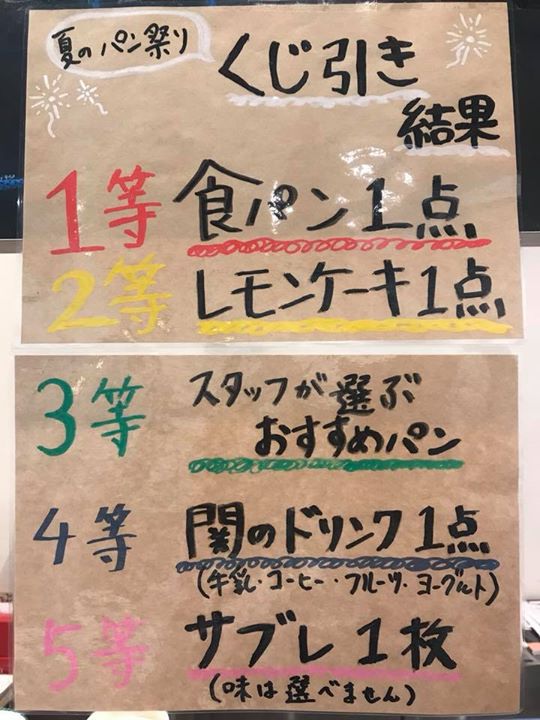 夏のパン祭り
くじ引き
結果
1等 食パン1点
2等 レモンケーキ1点
3等 スタッフが選ぶ
おすすめパン
4等 関のドリンク1点
(牛乳・コーヒー・フルーツ・ヨーグルト)
5等 サブレ1枚
(味は選べません)